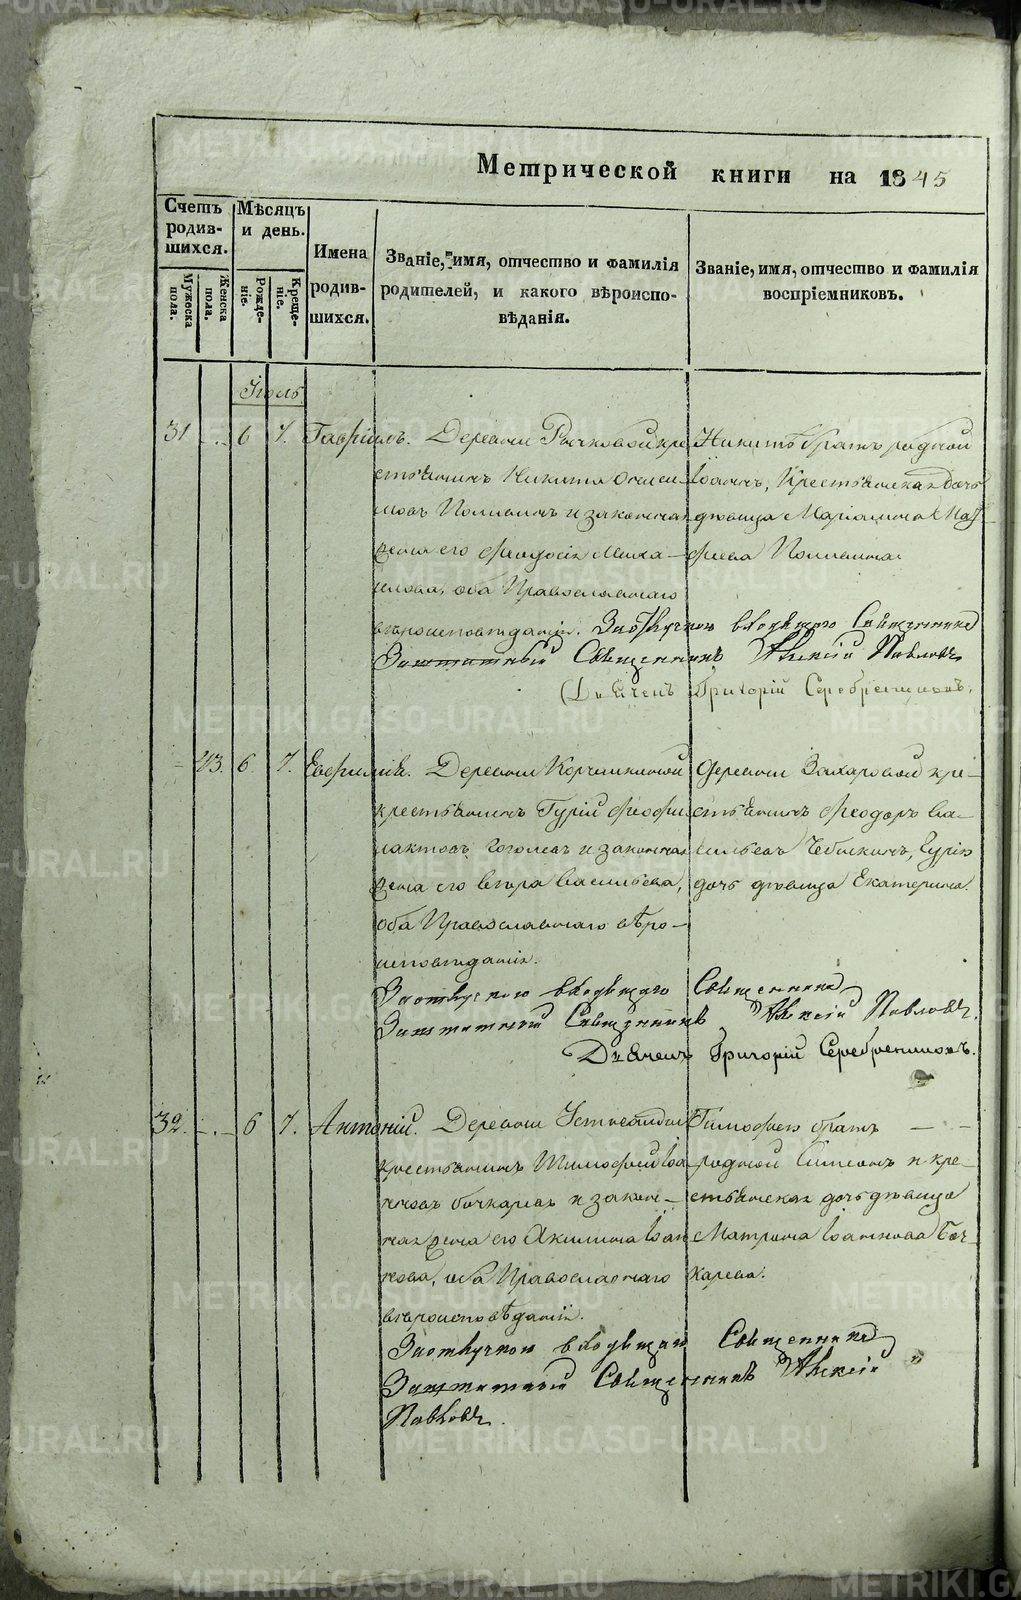 Метрической книги на 1845
Счетъ родившихся.
Мужеска пола.
Женска пола.
Мѣсяцъ и день.
Рожденіе.
Крещеніе.
Имена родившихся.
Званіе, имя, отчество и фамилія
родителей, и какого вѣроиспо-
вѣданія.
Званіе, имя, отчество и фамилія
воспріемниковъ.
Іюль
31 6 7. Гавріилъ. Деревни Рычковой кре
стьянинъ Никита
и законная
жена его Миха-
илова, оба Православнаго
вѣроисповѣданія.
Никитѣ братъ родной
Іоаннъ, Крестьянская дочь
дѣвица Маріанна
За отлучкою входящаго Священника
Заштатный Священникъ Алексій Павловъ
Дьяченъ Григорій Серебренниковъ.
23. 6 7. Евфимія. Деревни Корчемкиной
крестьянинъ Гурій Феофи
лактовъ Гоголевъ и законная
жена его Васильева,
оба Православнаго вѣро-
исповѣданія.
Деревни Захаровой кре-
стьянинъ Феодоръ Ва-
сильевъ Чебыкинъ, Гурія
дочь дѣвица Екатерина.
За отлучкою входящаго Священника
Заштатный Священникъ Алексій Павловъ.
Дьяченъ Григорій Серебренниковъ.
32. 6 7. Антоній. Деревни
крестьянинъ Тимофей Іоа
нновъ Бочкаревъ и закон-
ная жена его Акилина Іоан
нова, оба Православнаго
вѣроисповѣданія.
Тимофею братъ
родной Симеонъ и кре-
стьянская дочь дѣвица
Матрена Іоаннова Боч-
карева.
За отлучкою входящаго Священника
Заштатный Священникъ Алексій
Павловъ.
METRIKI.GASO-URAL.RU